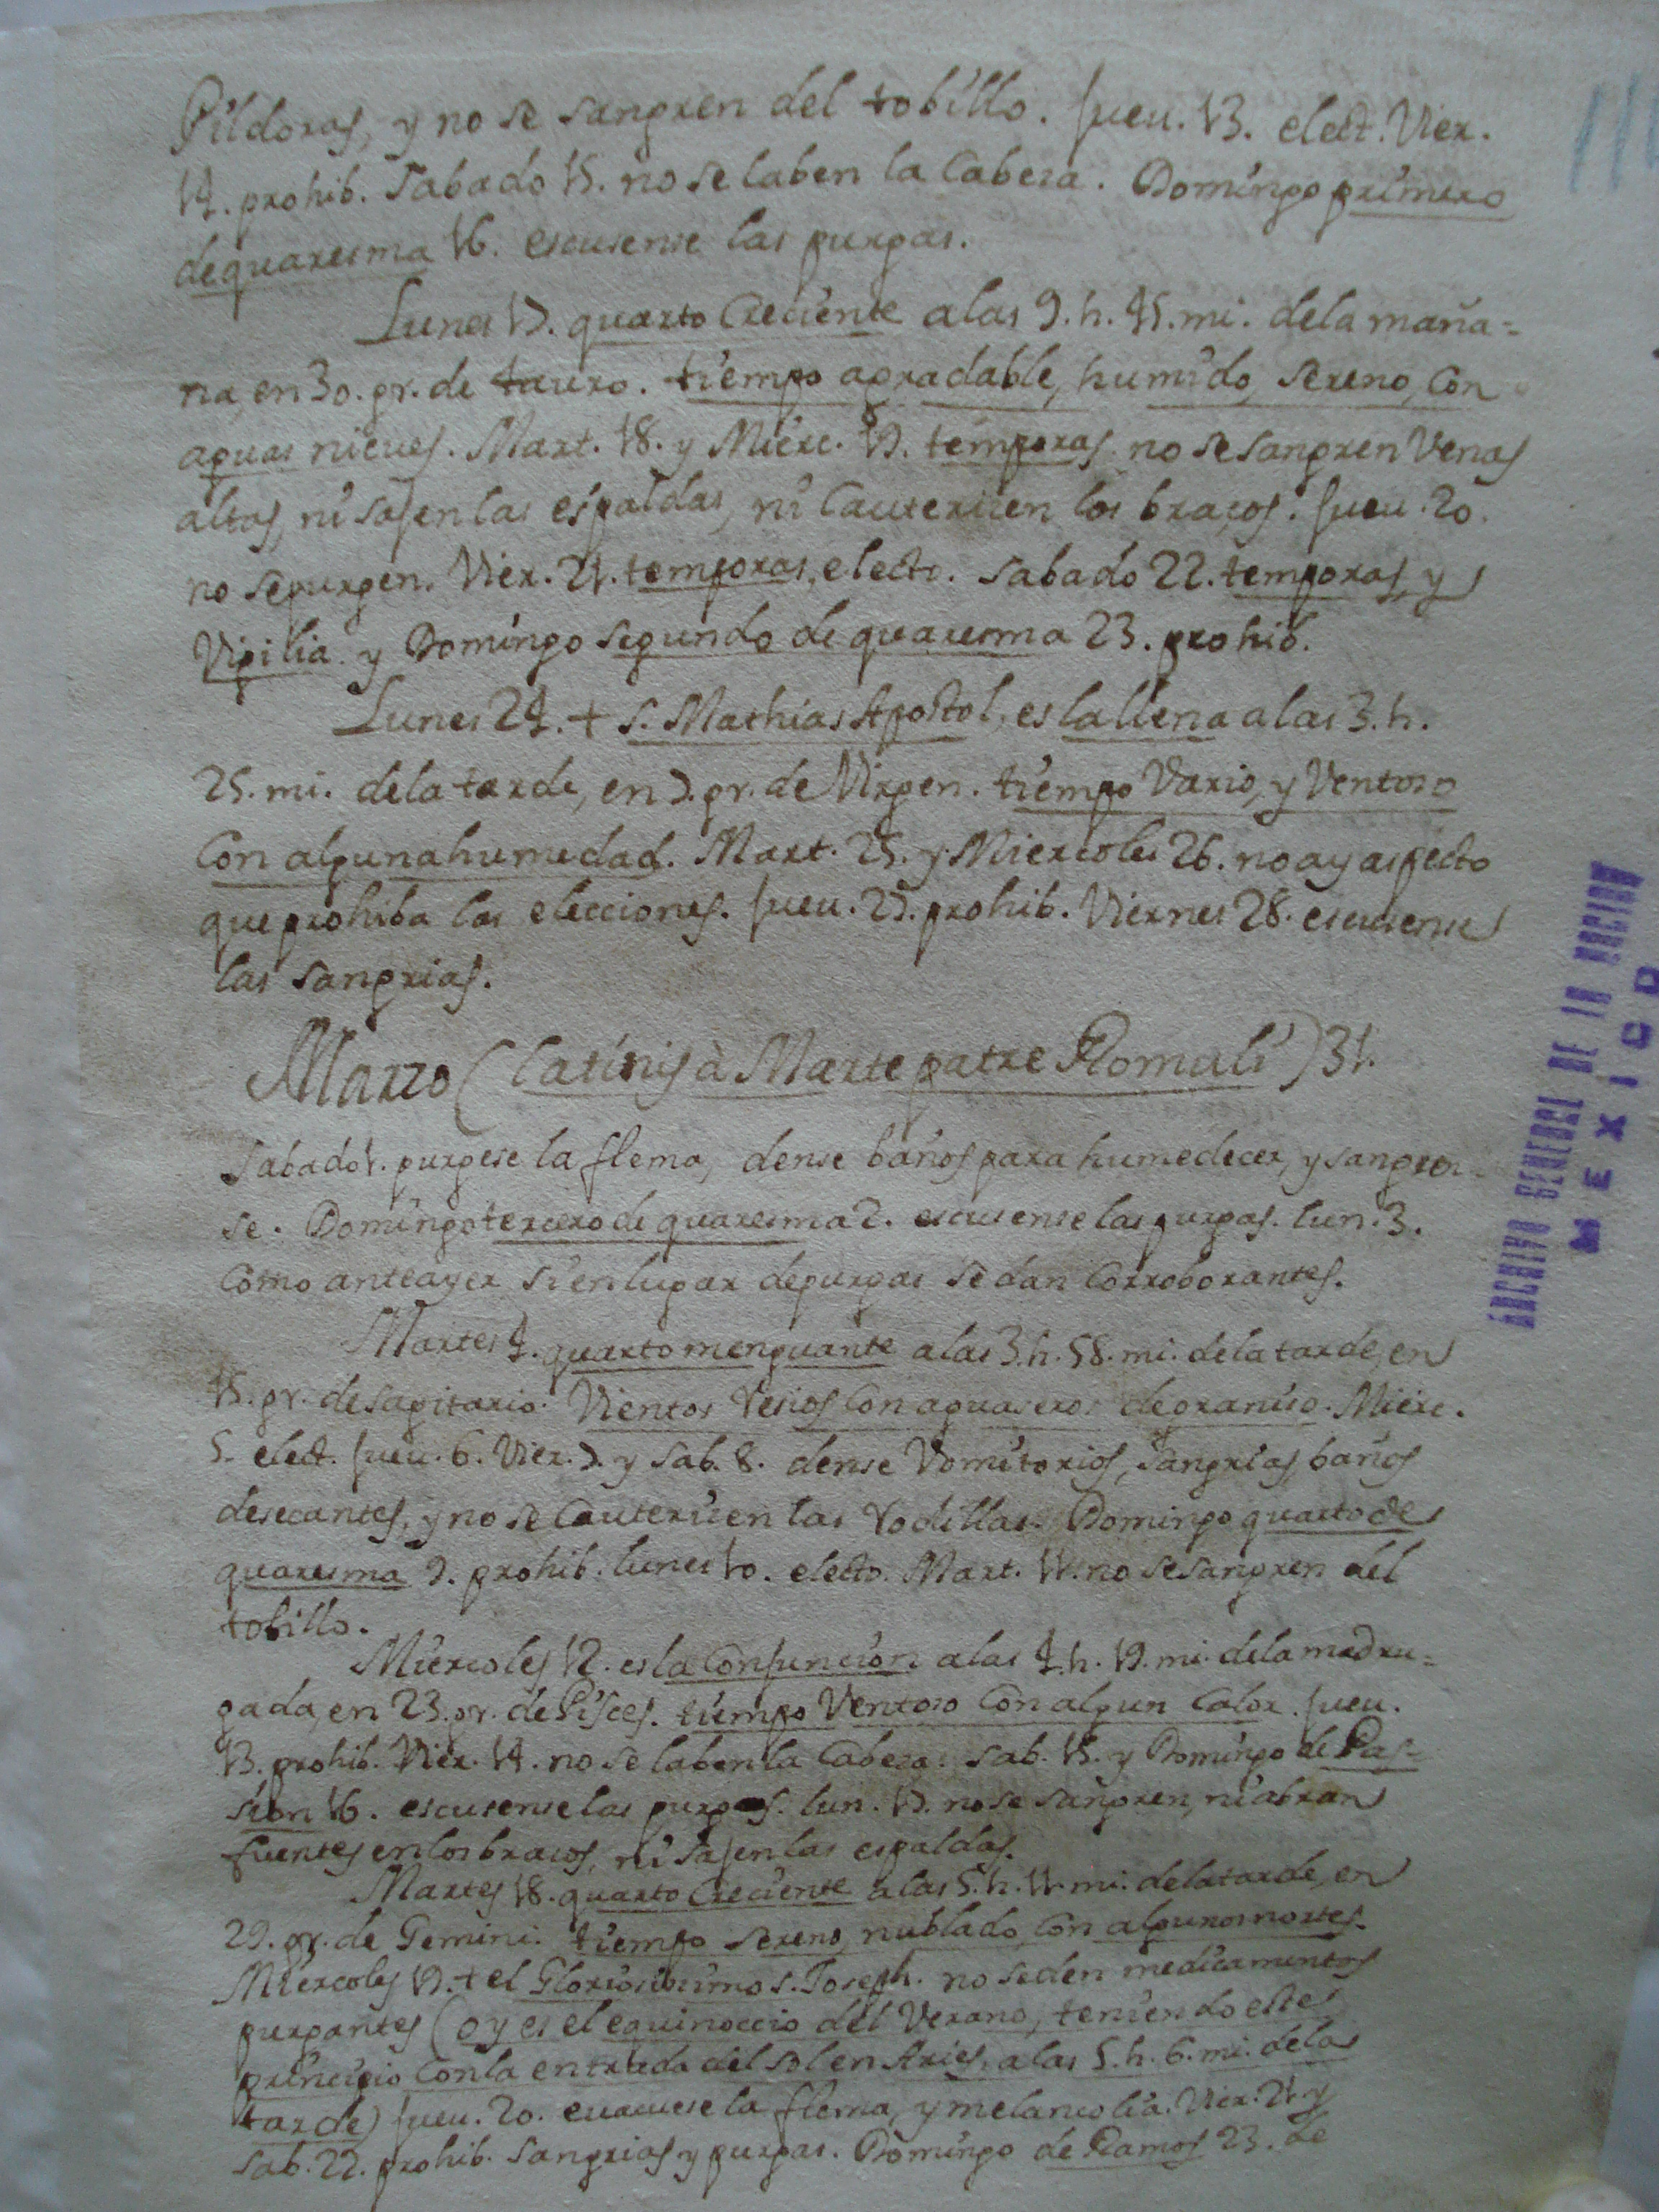 Pildoras, y no se sangren del tobillo. Jueu. 13. elect. Vier.
14. prohib. Sabado 15. no se laben la Cabeza. Domingo primero
de quaresma 16. escusense las purgas.
Lunes 17. quarto Creciente a las 9. h. 45. mi. de la maña=
na, en 30. gr. de tauro. tiempo agradable, humido, sereno, Con
aguas nieues. Mart. 18. y Mierc. 19. temporas. no se sangren Venas
altas, ni sajen las espaldas, ni Cauterizen los braços. Jueu. 20.
no se purgen. Vier. 21. temporas, electo. Sabado 22. temporas, y
Vigilia. y Domingo segundo de quaresma 23. prohib.
Lunes 24. + S. Mathias Apostol, es la llena a las 3. h.
25. mi. de la tarde, en 7. gr. de Virgen. tiempo Vario, y Ventoso
Con alguna humedad. Mart. 25. y Miercoles 26. no ay aspecto
que prohiba las elecciones. Jueu. 27. prohib. Viernes 28. escusense
las sangrias.
Marzo (latinis à Marte patre Romuli) 31.
Sabado 1. purgese la flema, dense baños para humedecer, y sangren-
se. Domingo tercero de quaresma 2. escusense las purgas. lun. 3.
Como anteayer si en lugar de purgas se dan Corroborantes.
Martes 4. quarto menguante a las 3. h. 58. mi. de la tarde, en
15. gr. de Sagitario. Vientos resios Con aguaseros de granizo. Mierc.
5. elect. Jueu. 6. Vier. 7. y Sab. 8. dense Vomitorios, sangrias, baños
desecantes, y no se Cauterizen las rodillas. Domingo quarto de
quaresma 9. prohib. lunes 10. electo. Mart. 11. no se sangren del
tobillo.
Miercoles 12. es la Conjuncion a las 4. h. 19. mi. de la madru=
gada, en 23. gr. de Pisces. tiempo Ventoso Con algun Calor. Jueu.
13. prohib. Vier. 14. no se laben la Cabeza. Sab. 15. y Domingo de Pas=
sion 16. escusense las purgas. lun. 17. no se sangren, ni abran
fuentes en los braços, ni sajen las espaldas.
Martes 18. quarto Creciente a las 5. h. 11. mi. de la tarde, en
29. gr. de Gemini. tiempo sereno, nublado, Con algunos nortes.
Miercoles 19. + el Gloriosissimo S. Joseph. no se den medicamentos
purgantes (oy es el equinoccio del Verano, teniendo este
principio Con la entrada del Sol en Aries, a las 5. h. 6. mi. de la
tarde) Jueu. 20. euacuese la flema, y melancolia. Vier. 21. y
Sab. 22. prohib. sangrias y purgas. Domingo de Ramos 23. de
ARCHIVO GENERAL DE LA NACION
MEXICO